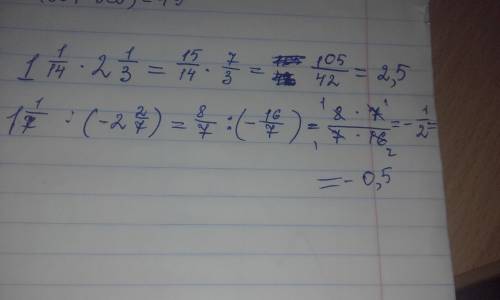 1 1/14 · 2 1/3 = 15/14 · 7/3 = 105/42 = 2,5
1 1/7 : (-2 2/7) = 8/7 : (-16/7) = 8 · 7/7 · 16 = -1/2 =
= -0,5